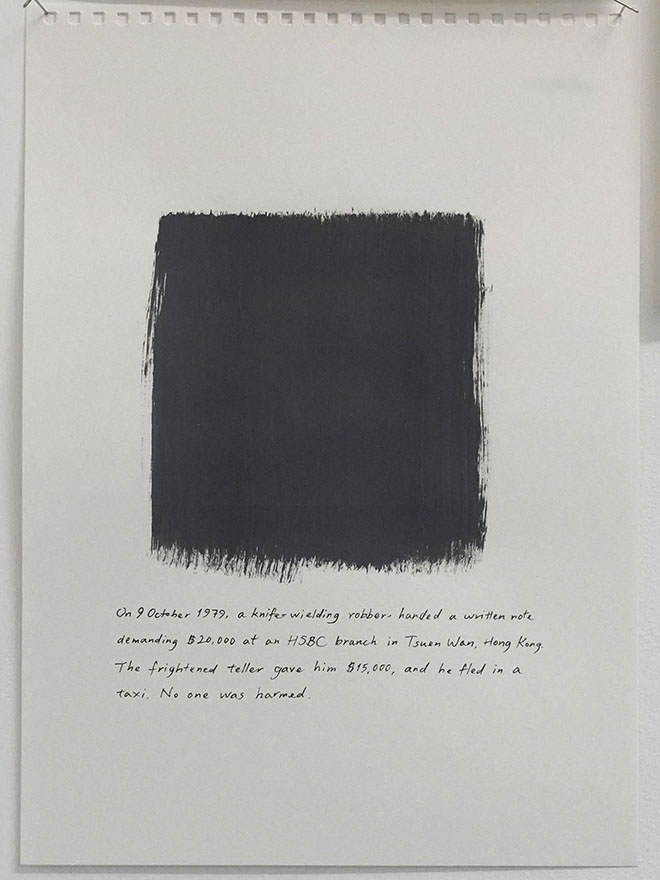 On 9 October 1979, a knife-wielding robber handed a written note
demanding $20,000 at an HSBC branch in Tsuen Wan, Hong Kong.
The frightened teller gave him $15,000, and he fled in a
taxi. No one was harmed.